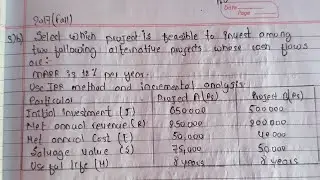 2017(Fall)
3b) Select which project is feasible to invest among
two following alternative projects whose cash flows
are:
MARR is 10% per year.
Use IRR method and incremental analysis
Particular Project A(Rs) Project B(Rs)
Initial Investment (I) 650000 500000
Net annual revenue (R) 250000 200000
Net annual Cost (E) 50,000 40000
Salvage value (S) 75,000 50000
Useful life (N) years years
Date
Page